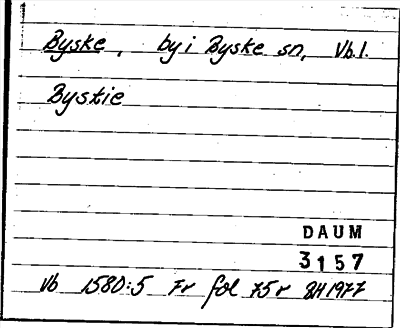 Byske, by i Byske sn, Vbl.
Bystie
DAUM
3157
Vb 1580:5 Fr fol 75r BH 1977